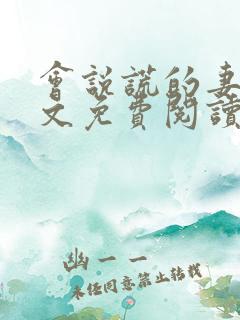 會說謊的妻
文免費閱讀
幽一一
未经同意禁止转载